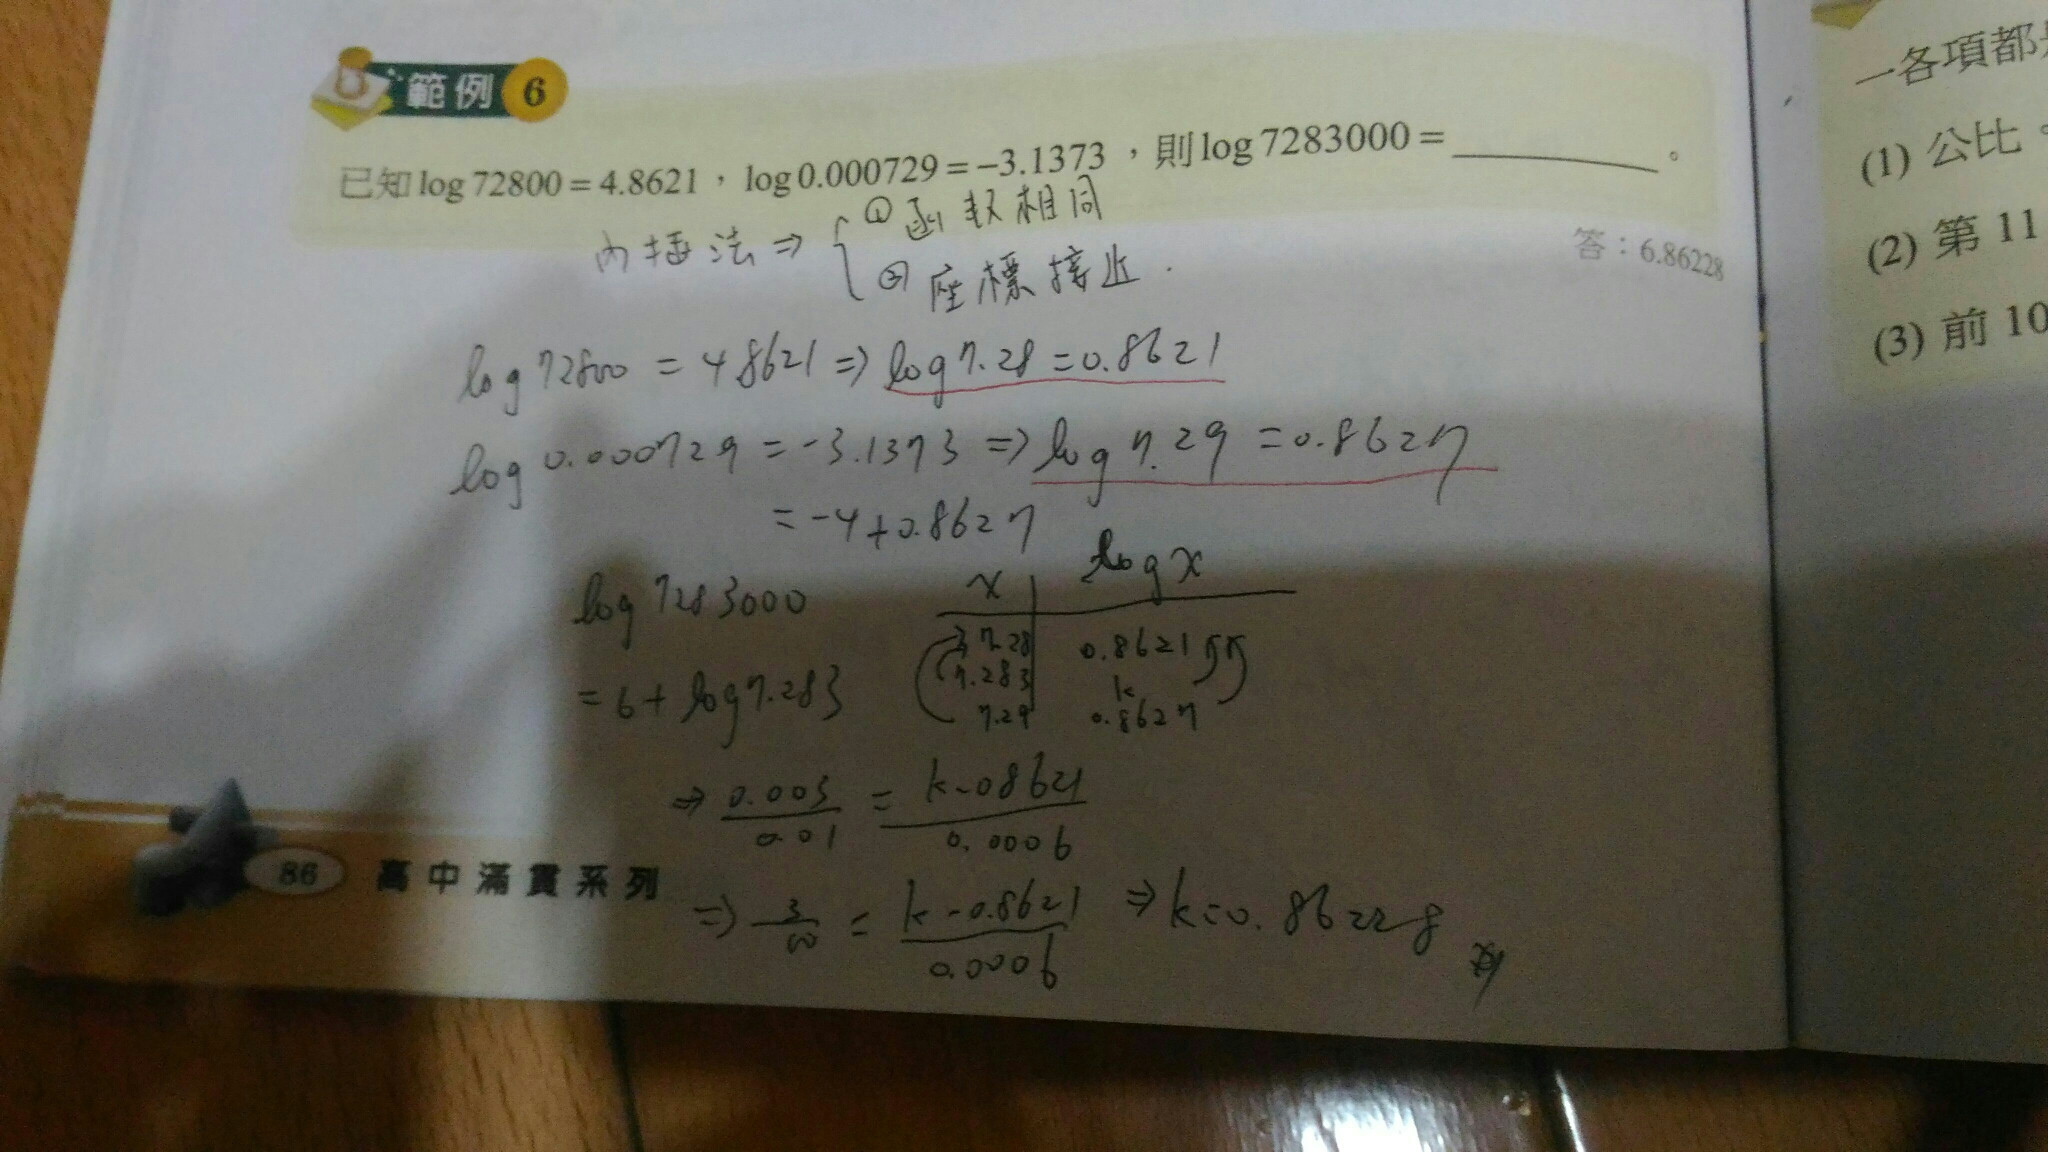 範例 6
已知 log 72800 = 4.8621，log 0.000729 = −3.1373，則 log 7283000 = ________。
答：6.86228
內插法 ⇒ { ① 函数相同
② 座標接近.
log 72800 = 4.8621 ⇒ log 7.28 = 0.8621
log 0.000729 = -3.1373 ⇒ log 7.29 = 0.8627
= -4 + 0.8627
log 7283000
= 6 + log 7.283
x | log x
7.28 | 0.8621
7.283 | k
7.29 | 0.8627
⇒ 0.003/0.01 = k-0.8621/0.0006
⇒ 3/10 = k-0.8621/0.0006 ⇒ k=0.86228
86 高中滿貫系列
一各項都
(1) 公比。
(2) 第 11
(3) 前 10